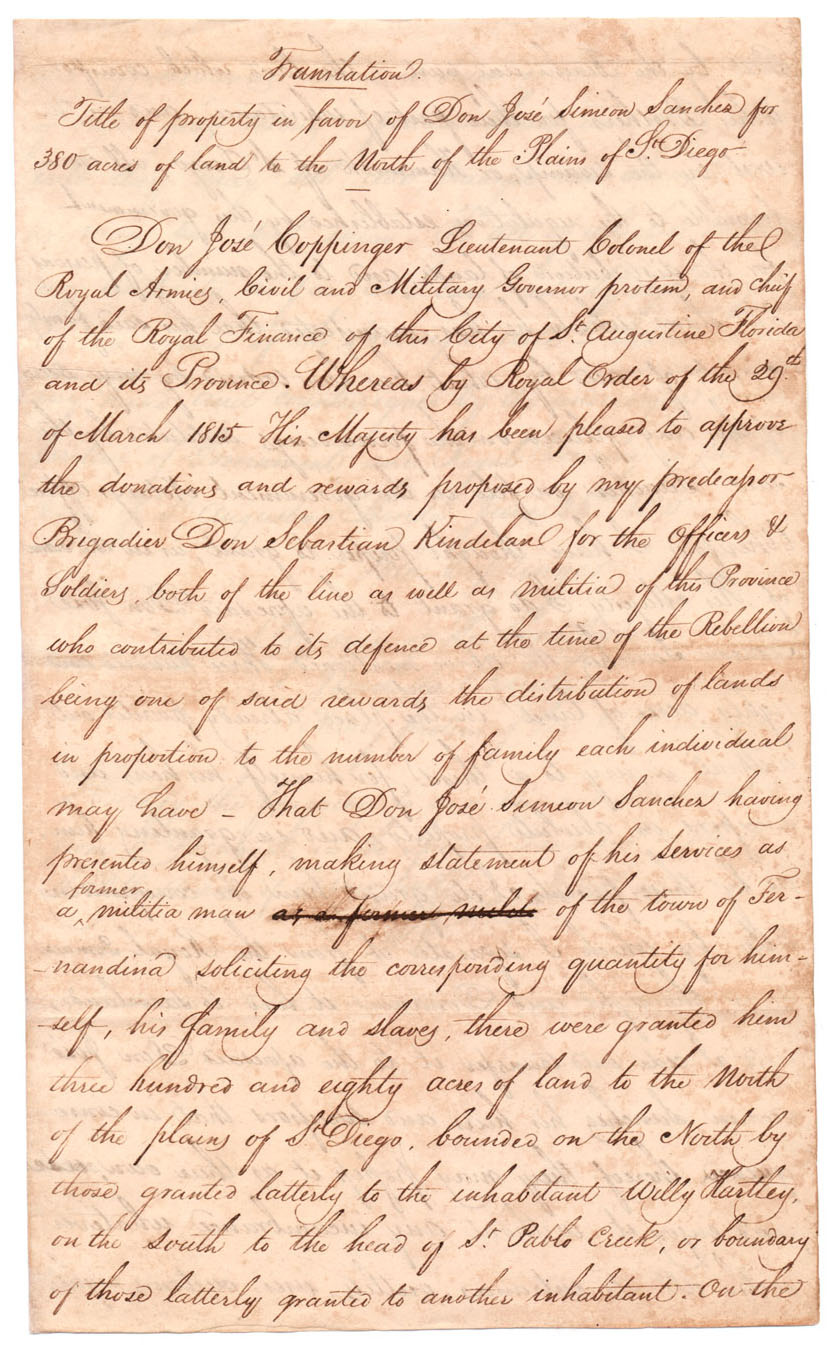 Translation.
Title of property in favor of Don José Simeon Sanchez for
380 acres of land to the North of the Plains of St. Diego
Don José Coppinger Lieutenant Colonel of the
Royal Armies, Civil and Military Governor protem, and chief
of the Royal Finance of this City of St. Augustine Florida
and its Province. Whereas by Royal Order of the 29th.
of March 1815 His Majesty has been pleased to approve
the donations and rewards proposed by my predecessor
Brigadier Don Sebastian Kindelan for the Officers &
Soldiers, both of the line as well as militia of this Province
who contributed to its defence at the time of the Rebellion
being one of said rewards the distribution of lands
in proportion to the number of family each individual
may have – That Don José Simeon Sanchez having
presented himself, making statement of his services as
a former militia man as a former of the town of Fer-
-nandina soliciting the corresponding quantity for him-
-self, his family and slaves, there were granted him
three hundred and eighty acres of land to the North
of the plains of St. Diego, bounded on the North by
those granted latterly to the inhabitant Willy Hartley,
on the south to the head of St. Pablo Creek, or boundary
of those latterly granted to another inhabitant. On the